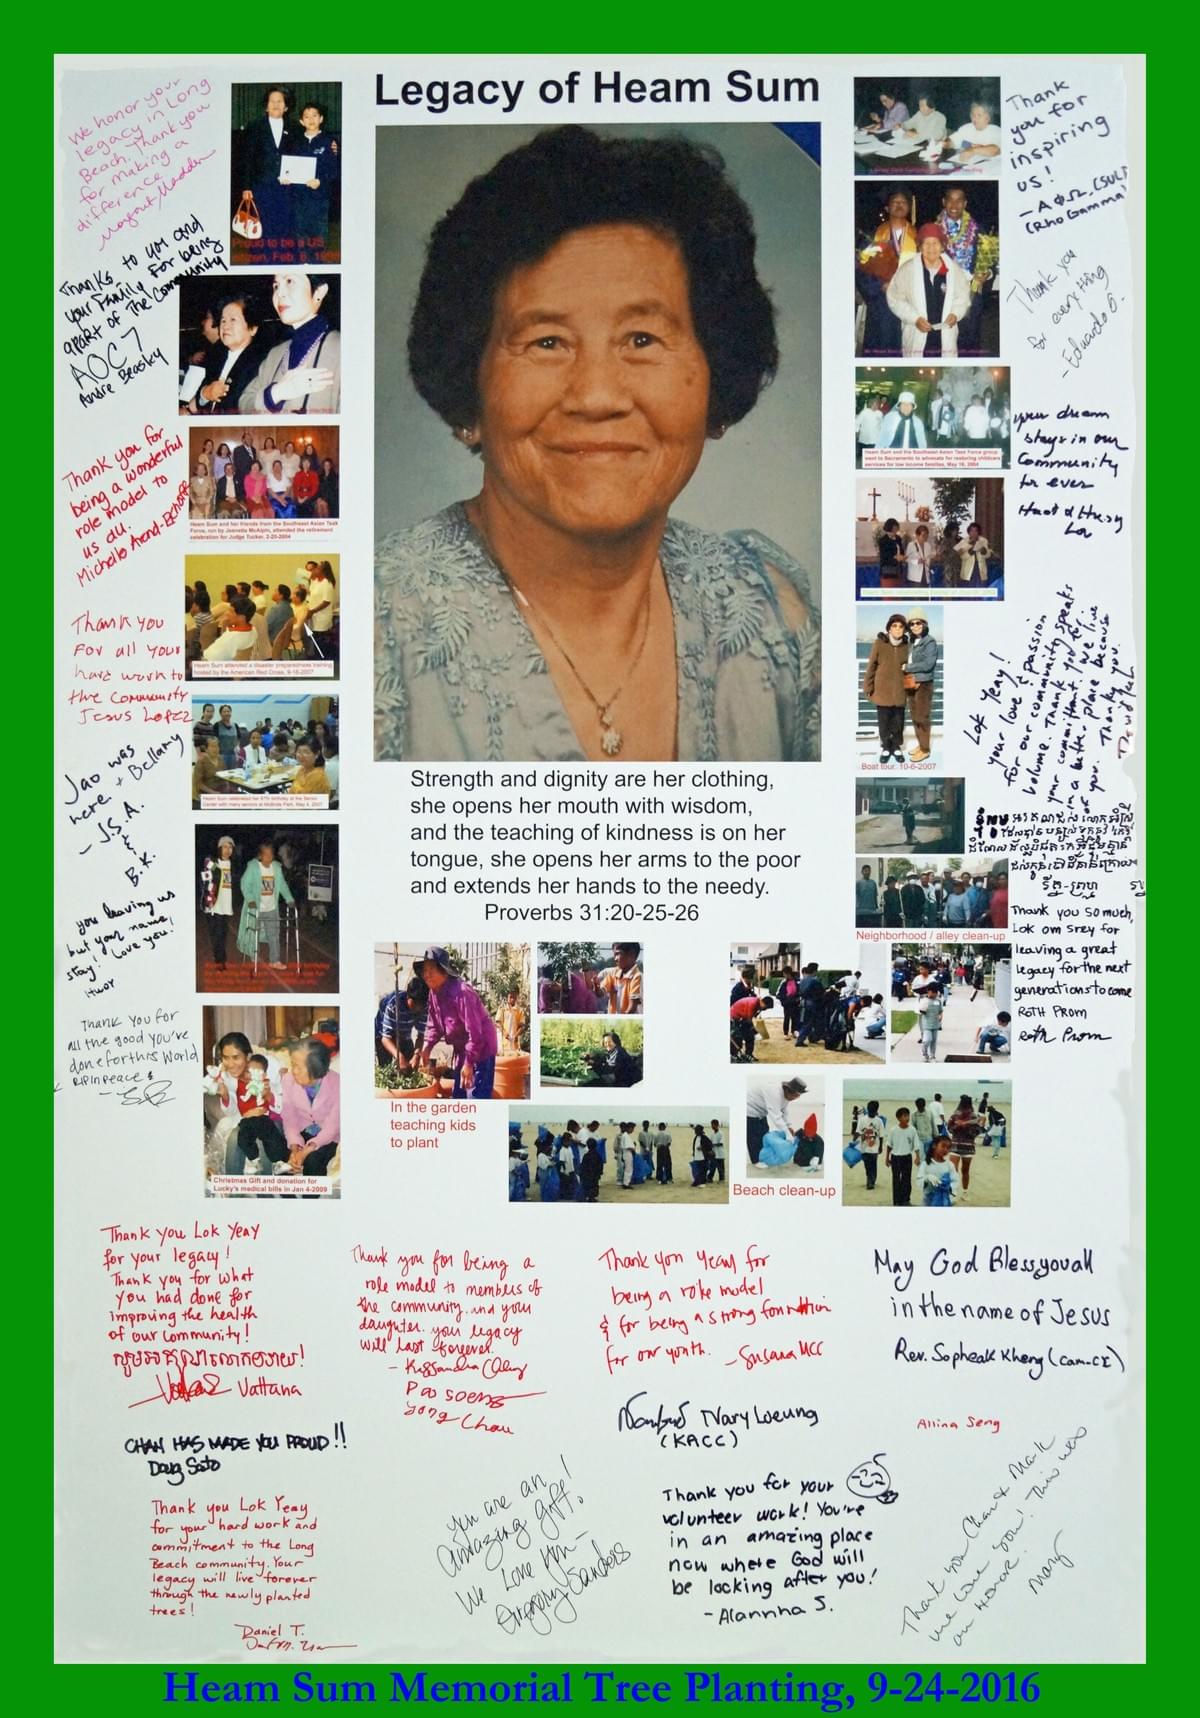 Legacy of Heam Sum
We honor your
legacy in Long
Beach. Thank you
for making a
difference
Proud to be a US
citizen, Feb. 6,
Thanks to you and
your Family for being
apart of The Community
AOC 7
Andre Beasley
Thank you for
being a wonderful
role model to
us all.
Heam Sum and her friends from the Southeast Asian Task
Force, run by Jeenetta McAlpin, attended the retirement
celebration for Judge Tucker, 2-20-2004
Thank you
For all your
hard work to
the community
Jesus Lopez
Heam Sum attended a disaster preparedness training
hosted by the American Red Cross, 9-18-2007
Jao was
here + Bellamy
- J.S.A.
&
B.K.
you leaving us
but your name
stay! Love you!
Thank you for
all the good you've
done for this World
RIP in peace
Christmas Gift and donation for
Lucky's medical bills in Jan 4-2009
Strength and dignity are her clothing,
she opens her mouth with wisdom,
and the teaching of kindness is on her
tongue, she opens her arms to the poor
and extends her hands to the needy.
Proverbs 31:20-25-26
In the garden
teaching kids
to plant
Beach clean-up
Thank
you for
inspiring
us!
- ΑΦΩ, CSULB
(Rho Gamma)
Thank you
for everything
- Eduardo O.
Heam Sum and the Southeast Asian Task Force group
went to Sacramento to advocate for restoring childcare
services for low income families, May 18, 2004
your dream
stays in our
Community
for ever
Boat tour. 10-6-2007
Lok Yeay!
your love & passion
for our community speaks
volume. Thank you for
your committment. We live
in a better place because
of you. Thank you.
Neighborhood / alley clean-up
Thank you so much,
Lok om srey for
leaving a great
legacy for the next
generations to come
Roth Prom
Roth Prom
Thank you Lok Yeay
for your legacy!
Thank you for what
you had done for
improving the health
of our community!
Vattana
Thank you for being a
role model to members of
the community and your
daughter. your legacy
will last forever.
Thank you Yeay for
being a role model
& for being a strong foundation
for our youth. - Susana UCC
May God Bless you all
in the name of Jesus
Rev. Sopheak Kheng (Cam-CC)
CHAN HAS MADE YOU PROUD!!
Doug Sato
Nary Loeung
(KACC)
Allina Seng
Thank you Lok Yeay
for your hard work and
commitment to the Long
Beach community. Your
legacy will live forever
through the newly planted
trees!
Daniel T.
you are an
amazing gift!
We Love You -
Thank you for your
volunteer work! You're
in an amazing place
now where God will
be looking after you!
- Alannha S.
Thank you Chan & Mark
we love you! This was
an Honor.
Mary
Heam Sum Memorial Tree Planting, 9-24-2016